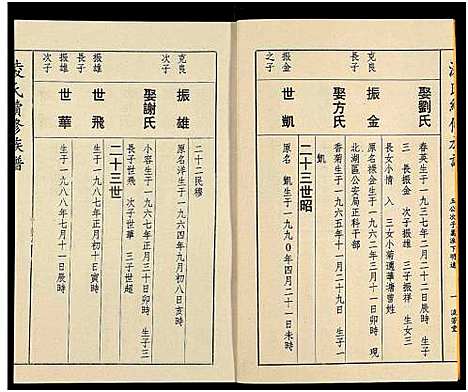 凌氏續修族譜
玉公次子萬淮下明述
一
流芳堂
娶劉氏
春英生于一九三七年二月二十二日辰時 生子
三 長振金 次子振雄 三子振祥 生女三
長女小情 入 三女小菊適華塘曾姓
克良
長子
振金
原名祿金生于一九六二年三月十一日寅時 現
北湖區公安局正科干部
娶方氏
香菊生于一九六五年十一月二十九日 生子一
凱
二十三世昭
振金
之子
世凱
原名 凱生于一九九0年四月二十一日未時
二十二民穆
克良
次子
振雄
原名洋生于一九六四年九月初八日亥時
娶謝氏
小容生于一九六七年正月三十日卯時 生子三
長子世飛 次子世華 三子世超
二十三世
振雄
長子
世飛
生于一九八六年正月初十日寅時
振雄
次子
世華
生于一九八八年七月十一日辰時
凌氏續修族譜